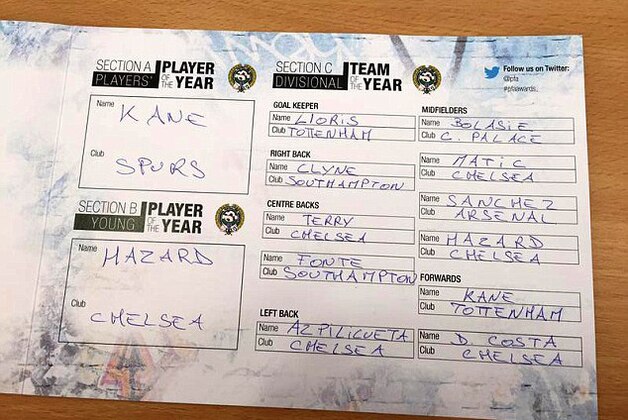 SECTION A
PLAYERS'
PLAYER
OF THE
YEAR
Name KANE
Club SPURS
SECTION B
YOUNG
PLAYER
OF THE
YEAR
Name HAZARD
Club CHELSEA
SECTION C
DIVISIONAL
TEAM
OF THE
YEAR
GOAL KEEPER
Name LLORIS
Club TOTTENHAM
RIGHT BACK
Name CLYNE
Club SOUTHAMPTON
CENTRE BACKS
Name TERRY
Club CHELSEA
Name FONTE
Club SOUTHAMPTON
LEFT BACK
Name AZPILICUETA
Club CHELSEA
Follow us on Twitter:
@pfa
#pfaawards
MIDFIELDERS
Name BOLASIE
Club C. PALACE
Name MATIC
Club CHELSEA
Name SANCHEZ
Club ARSENAL
Name HAZARD
Club CHELSEA
FORWARDS
Name KANE
Club TOTTENHAM
Name D. COSTA
Club CHELSEA